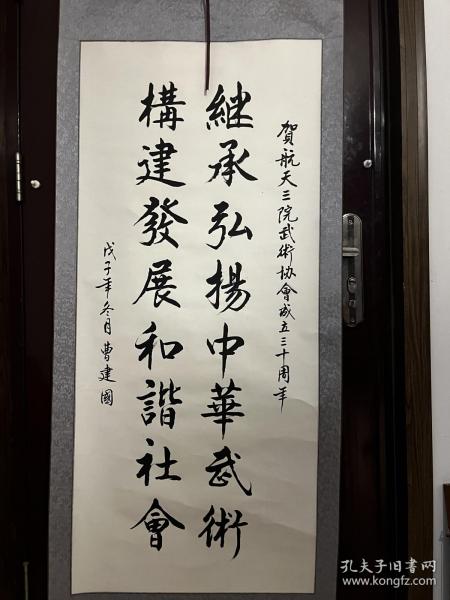 賀航天三院武術协會成立三十周年
継承弘揚中華武術
構建發展和諧社會
戊子年冬月曹建國
孔夫子旧书网
www.kongfz.com